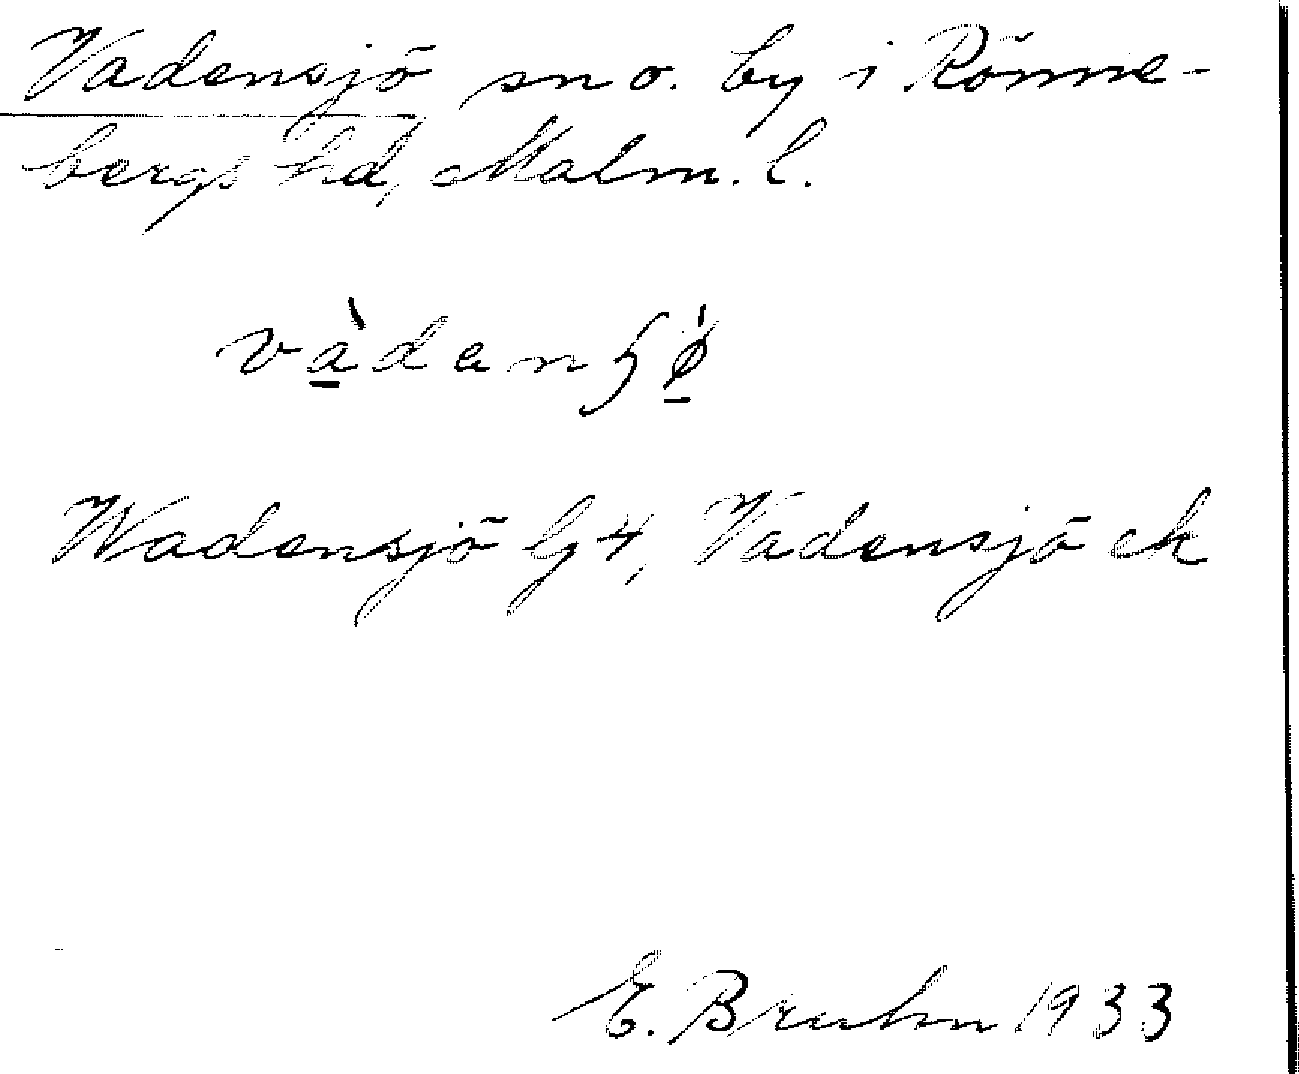 Vadensjö sn o. by i Rönne-
bergs hd, Malm. l.
vàdanʃø̀
Wadensjö G4, Vadensjö ek
E. Bruhn 1933